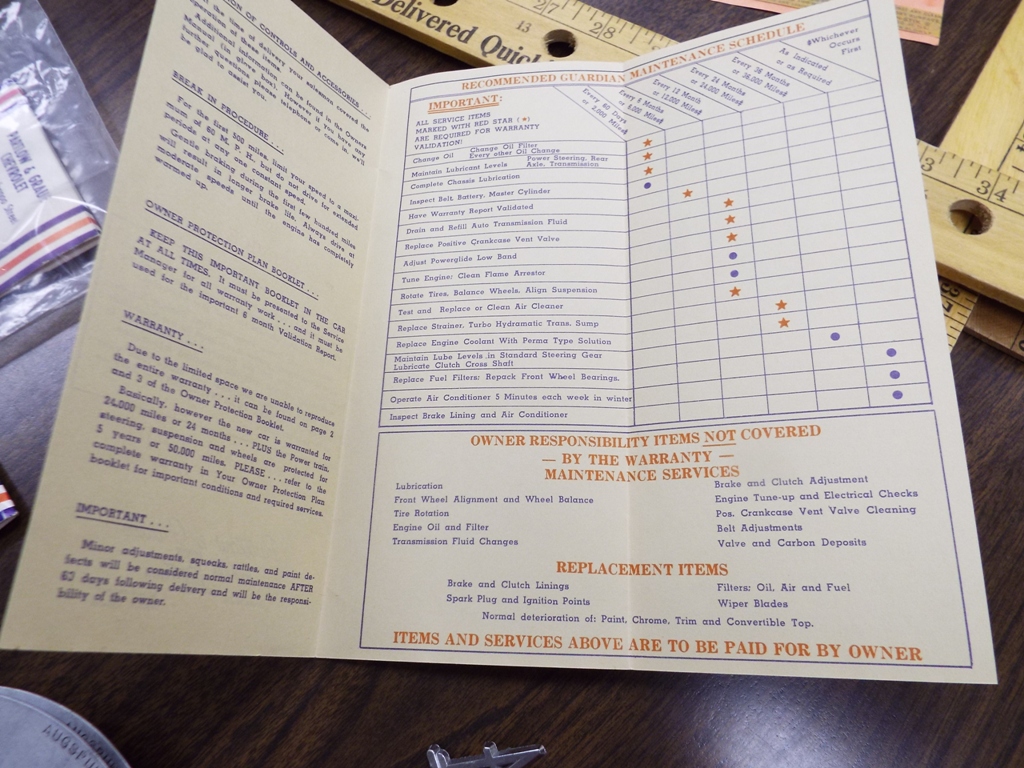 Delivered Quic
13
27
28
33
34
PARSLOW & GRAND
CHEVROLET
ON OF CONTROLS AND ACCESSORIES...
the time of delivery your salesmen covered the
operation of these items.
Additional information can be found in the Owners
Manual (in glovebox). However if you have any
further questions please telephone or come in, we'll
be glad to assist you.
BREAK IN PROCEDURE...
For the first 500 miles, limit your speed to a maxi-
mum of 60 M. P. H. but do not drive for extended
periods at any one constant speed.
Gentle braking during the first few hundred miles
will result in longer brake life. Always drive at
moderate speeds until the engine has completely
warmed up.
OWNER PROTECTION PLAN BOOKLET...
KEEP THIS IMPORTANT BOOKLET IN THE CAR
AT ALL TIMES. It must be presented to the Service
Manager for all warranty work... and it must be
used for the important 6 month Validation Report.
WARRANTY...
Due to the limited space we are unable to reproduce
the entire warranty... it can be found on page 2
and 3 of the Owner Protection Booklet.
Basically, however the new car is warranted for
24,000 miles or 24 months... PLUS the Power train,
steering, suspension and wheels are protected for
5 years or 50,000 miles. PLEASE... refer to the
complete warranty in Your Owner Protection Plan
booklet for important conditions and required services.
IMPORTANT...
Minor adjustments, squeaks, rattles, and paint de-
fects will be considered normal maintenance AFTER
60 days following delivery and will be the responsi-
bility of the owner.
RECOMMENDED GUARDIAN MAINTENANCE SCHEDULE
IMPORTANT:
ALL SERVICE ITEMS
MARKED WITH RED STAR (★)
ARE REQUIRED FOR WARRANTY
VALIDATION!
Every 60 Days
or 2,000 Miles‡
Every 6 Months
or 6,000 Miles‡
Every 12 Month
or 12,000 Miles‡
Every 24 Months
or 24,000 Miles‡
Every 36 Months
or 36,000 Miles‡
As Indicated
or as Required
‡Whichever
Occurs
First
Change Oil Change Oil Filter
Every other Oil Change
Maintain Lubricant Levels Power Steering, Rear
Axle, Transmission
Complete Chassis Lubrication
Inspect Belt, Battery, Master Cylinder
Have Warranty Report Validated
Drain and Refill Auto Transmission Fluid
Replace Positive Crankcase Vent Valve
Adjust Powerglide Low Band
Tune Engine; Clean Flame Arrestor
Rotate Tires, Balance Wheels, Align Suspension
Test and Replace or Clean Air Cleaner
Replace Strainer, Turbo Hydramatic Trans. Sump
Replace Engine Coolant With Perma Type Solution
Maintain Lube Levels in Standard Steering Gear
Lubricate Clutch Cross Shaft
Replace Fuel Filters: Repack Front Wheel Bearings.
Operate Air Conditioner 5 Minutes each week in winter
Inspect Brake Lining and Air Conditioner
OWNER RESPONSIBILITY ITEMS NOT COVERED
— BY THE WARRANTY —
MAINTENANCE SERVICES
Lubrication
Front Wheel Alignment and Wheel Balance
Tire Rotation
Engine Oil and Filter
Transmission Fluid Changes
Brake and Clutch Adjustment
Engine Tune-up and Electrical Checks
Pos. Crankcase Vent Valve Cleaning
Belt Adjustments
Valve and Carbon Deposits
REPLACEMENT ITEMS
Brake and Clutch Linings
Spark Plug and Ignition Points
Filters: Oil, Air and Fuel
Wiper Blades
Normal deterioration of: Paint, Chrome, Trim and Convertible Top.
ITEMS AND SERVICES ABOVE ARE TO BE PAID FOR BY OWNER